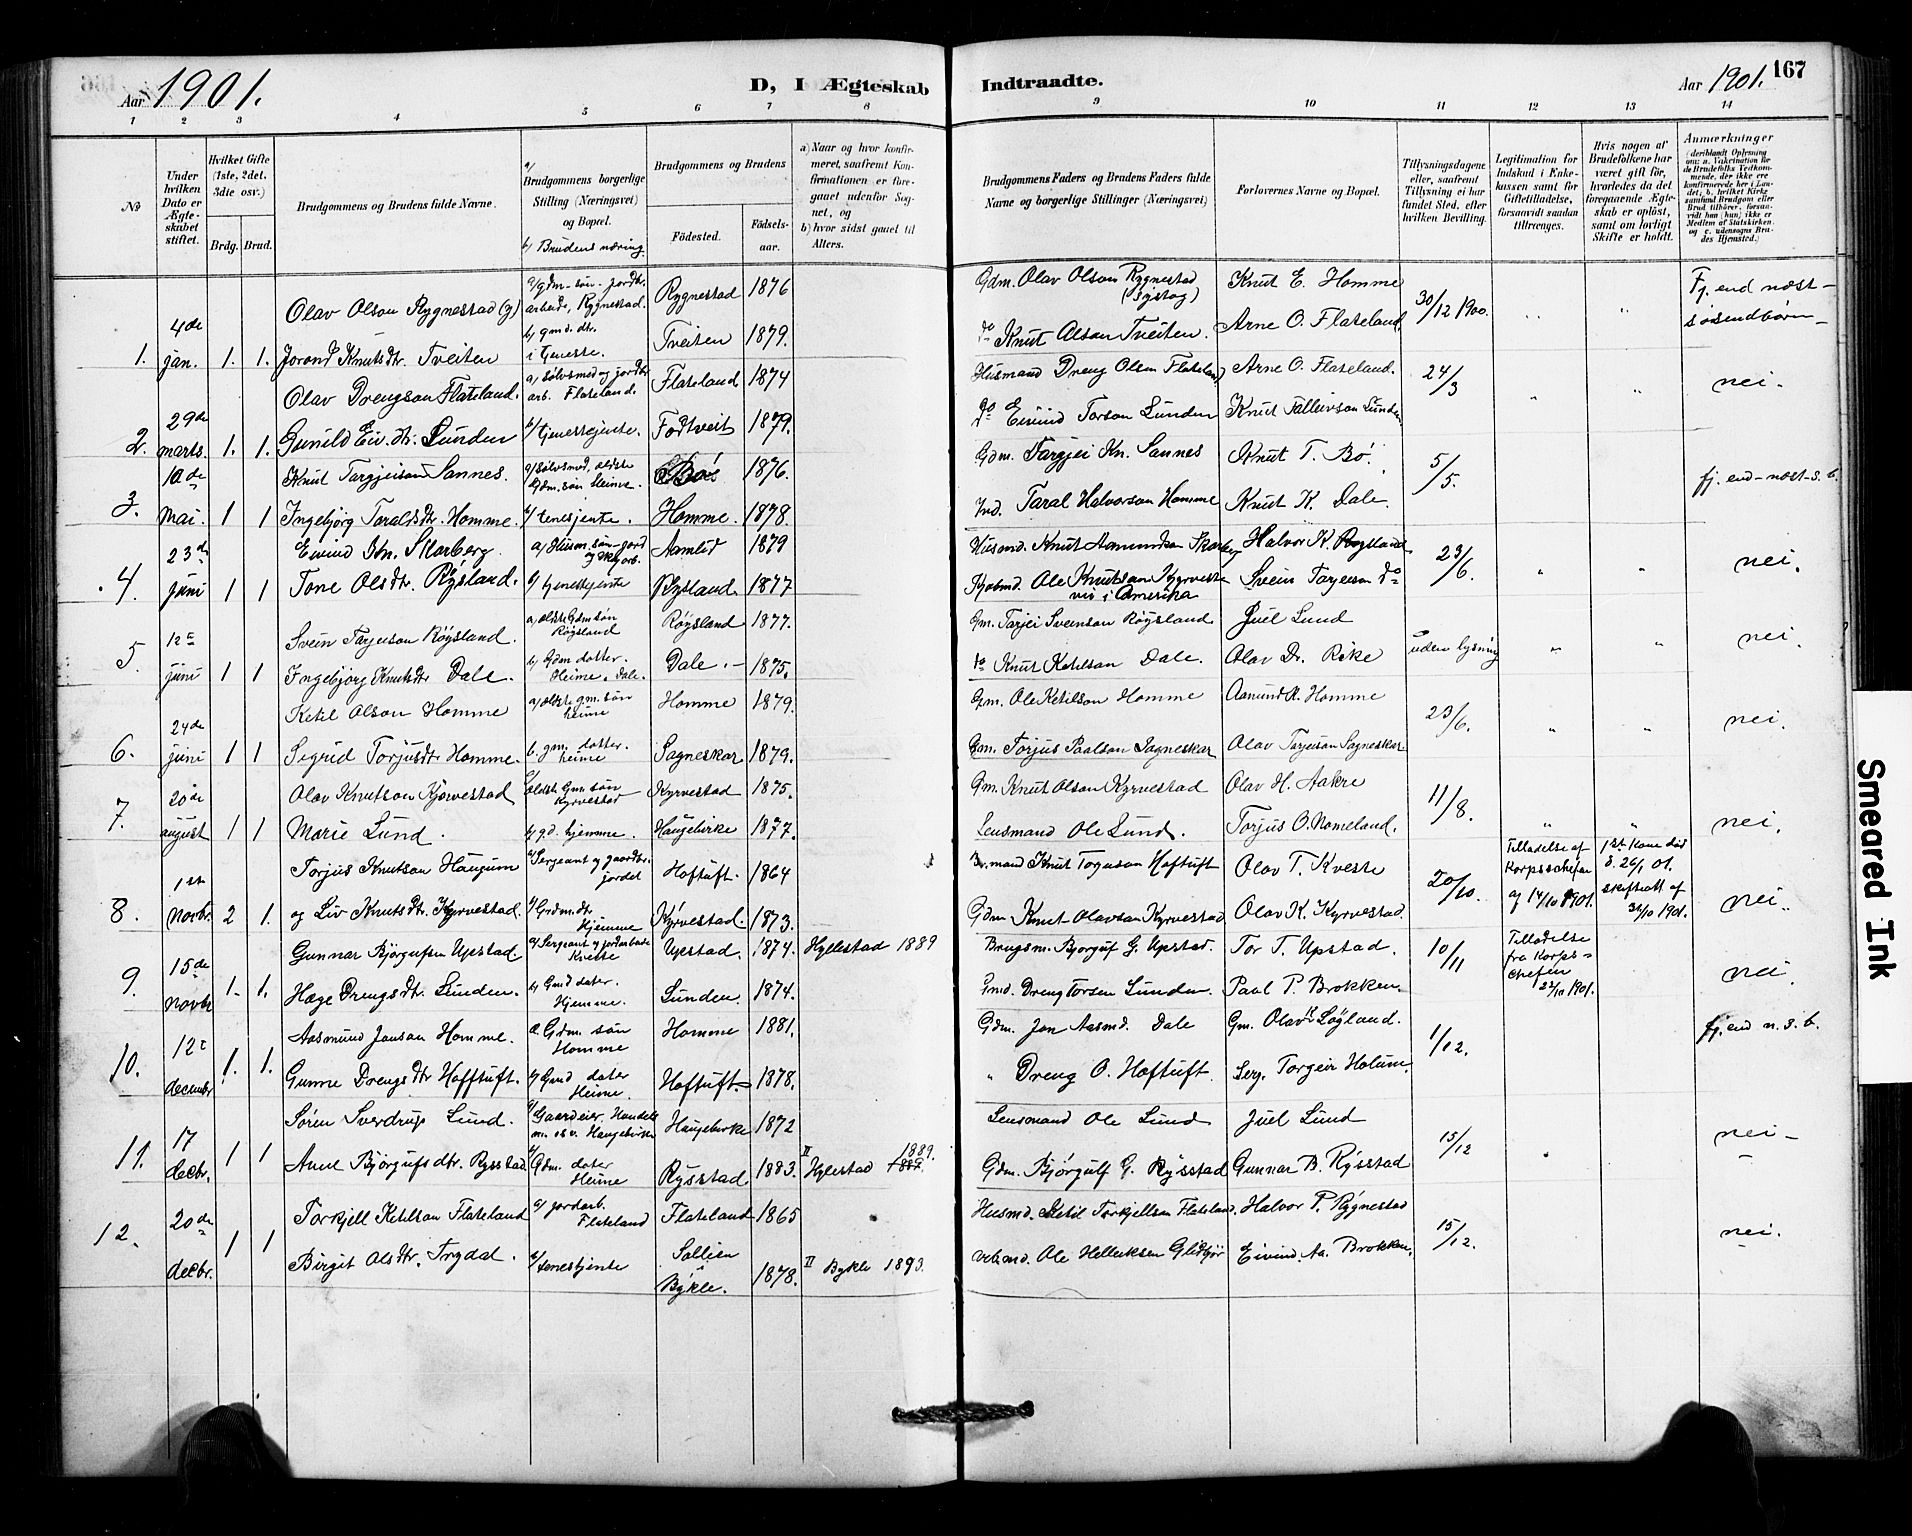 Aar 1901.
D, I Ægteskab Indtraadte.
Aar 1901. 167
1 2 3 4 5 6 7 8 9 10 11 12 13 14
№
Under hvilken Dato er Ægteskabet stiftet.
Hvilket Gifte (1ste, 2det, 3die osv.)
Brdg. Brud.
Brudgommens og Brudens fulde Navne.
a) Brudgommens borgerlige Stilling (Næringsvei) og Bopæl.
b) Brudens næring.
Brudgommens og Brudens
Fødested. Fødsels-aar.
a) Naar og hvor konfirmeret, saafremt Konfirmationen er foregaaet udenfor Sognet, og
b) hvor sidst gaaet til Alters.
Brudgommens Faders og Brudens Faders fulde Navne og borgerlige Stillinger (Næringsvei)
Forlovernes Navne og Bopæl.
Tillysningsdagene eller, saafremt Tillysning ei har fundet Sted, efter hvilken Bevilling.
Legitimation for Indskud i Enkekassen samt for Giftetilladelse, forsaavidt saadan tiltrænges.
Hvis nogen af Brudefolkene har været gift før, hvorledes da det foregaaende Ægteskab er opløst, samt om lovligt Skifte er holdt.
Anmærkninger
1. 4de jan. 1. 1.
Olav Olson Rygnestad (y) a/ Gdm-søn- jordbr. arbeide, Rygnestad. Rygnestad 1876 Gdm. Olav Olson Rygnestad Knut E. Homme 30/12 1900. " " Fj. end næst-
Jorond Knutsdtr. Tveiten b/ gmd. dtr. i tjeneste. Tveiten 1879. do Knut Olson Tveiten. Arne O. Flateland søsendbørn-
2. 29de marts. 1. 1.
Olav Drengson Flateland. a/ sølvsmed og jordbr. arb. Flateland. Flateland 1874 Husmand Dreng Olson Flateland Arne O. Flateland. 24/3 " " nei.
Gunild Eiv. dtr. Lunden b/ tjenestejente. Fodtveit 1879. do Eivind Torson Lunden Knut Talleivson Lunden
3. 10de Mai. 1 1
Knut Targjeison Sannes. a/ sølvsmed, ældste Gdm. søn Heime. Bø 1876. Gdm. Targjei Kn. Sannes Knut T. Bø. 5/5. fj. end-næst-s. b.
Ingebjørg Taraldsdtr. Homme. b/ tenesjente. Homme. 1878. Ind. Taral Halvorson Homme Knut K. Dale
4. 23de juni 1 1
Eivind Kn. Skarberg. a/ Husm. søn-jord Aamlid 1879 Husmd. Knut Aamundson Skarberg Halvor K. Rysland 23/6. " " nei.
Tone Olsdtr. Røysland. b/ tjenestjente Rysland 1877 Ole Knutson Svein Targeson do
i Amerika
5. 12e juni 1 1
Svein Tarjeison Røysland. a/ ældste Gdm søn Røysland Røysland 1877. Gm. Tarjei Sveinson Røysland Juel Lund uden lysning " " nei.
Ingebjørg Knutsdtr Dale. b/ Gdm dotter. Heime. Dale. Dale. - 1875. do Knut Ketilson Dale. Olav Dr. Rike
6. 24de juni 1 1
Ketil Olson Homme a/ ældste gm. søn heime Homme 1879. Gm. Ole Ketilson Homme Aamund K. Homme 23/6. " " nei.
Sigrid Torjusdtr Homme. b. gm. datter. heime Sagneskar 1879. Gm. Torjus Paalson Sagneskar Olav Tarjeison Sagneskar
7. 20de august 1 1
Olav Knutson Kjørvestad a/ ældste Gm. søn Kyrvestad Kyrvestad 1875. Gm. Knut Olson Kyrvestad Olav H. Aakre 11/8. " " nei.
Marie Lund. b/ gd. hjemme. Haugebirke 1877. Lensmand Ole Lund. Torjus O. Nomeland.
8. 1ste Novbr. 2 1.
Torjus Knutson Haugum a/ Sergeant og gaardbr. Hoftuft. 1864 Br. mand Knut Torjuson Hoftuft Olav T. Kveste 20/10. Tilladelse af Korpsschefen ag 14/10 1901. 1ste Kone død d. 26/1 01. skifteatt af 31/10 1901. nei.
og Liv Knutsdtr. Kyrvestad. b/ Grdm.dtr. Hjemme Kyrvestad. 1873. Gdm Knut Olavson Kyrvestad Olav K. Kyrvestad.
9. 15de novbr 1- 1.
Gunnar Bjørgufsen Upstad. a/ Sergeant og jordarbeide Kveste Upstad. 1874. Hyllestad 1889 Brugsm. Bjørguf G. Upstad. Tor T. Upstad. 10/11 Tilladelse fra Korpschefen 22/10 1901. nei.
Hæge Drengsdtr. Lunden. b/ Gmd dater. Hjemme. Lunden. 1874. Gmd. Dreng Torsen Lunden. Paal P. Brokken.
10. 12e decembr 1. 1.
Aasmund Jonson Homme. a Gdm. søn Homme Homme 1881. Gdm. Jon Aasmd. Dale Gm. Olav Løyland. 1/12. fj. end n. s. b.
Gunne Drengsdtr Hofftuft. b/ Gmd dater Heime. Hoftuft. 1878. " Dreng O. Hoftuft. Serg. Torgeir Holum.
11. 17 decbr. 1 1
Søren Sverdrup Lund. a/ Gaardeier, Handels m. osv. Haugebirke Haugebirke 1872 Lensmand Ole Lund Juel Lund 15/12 nei-
Anne Bjørgufsdtr. Rysstad b/ Gdm. dater Heime Rysstad 1883. II Hylestad 1889. Gdm. Bjørgulf G. Rysstad Gunnar B. Rysstad
12. 20de decbr. 1 1
Torkjell Ketilson Flateland a/ jordarb. Flateland Flateland 1865 Husmd. Ketil Torkjellsen Flateland. Halvor P. Rygnestad 15/12. nei.
Birgit Olsdtr. Trydal. b/ tenestjente Bykle. 1878. II Bykle 1893. Ole Helleiksen Eivind Aa. Brokken.
Smeared Ink